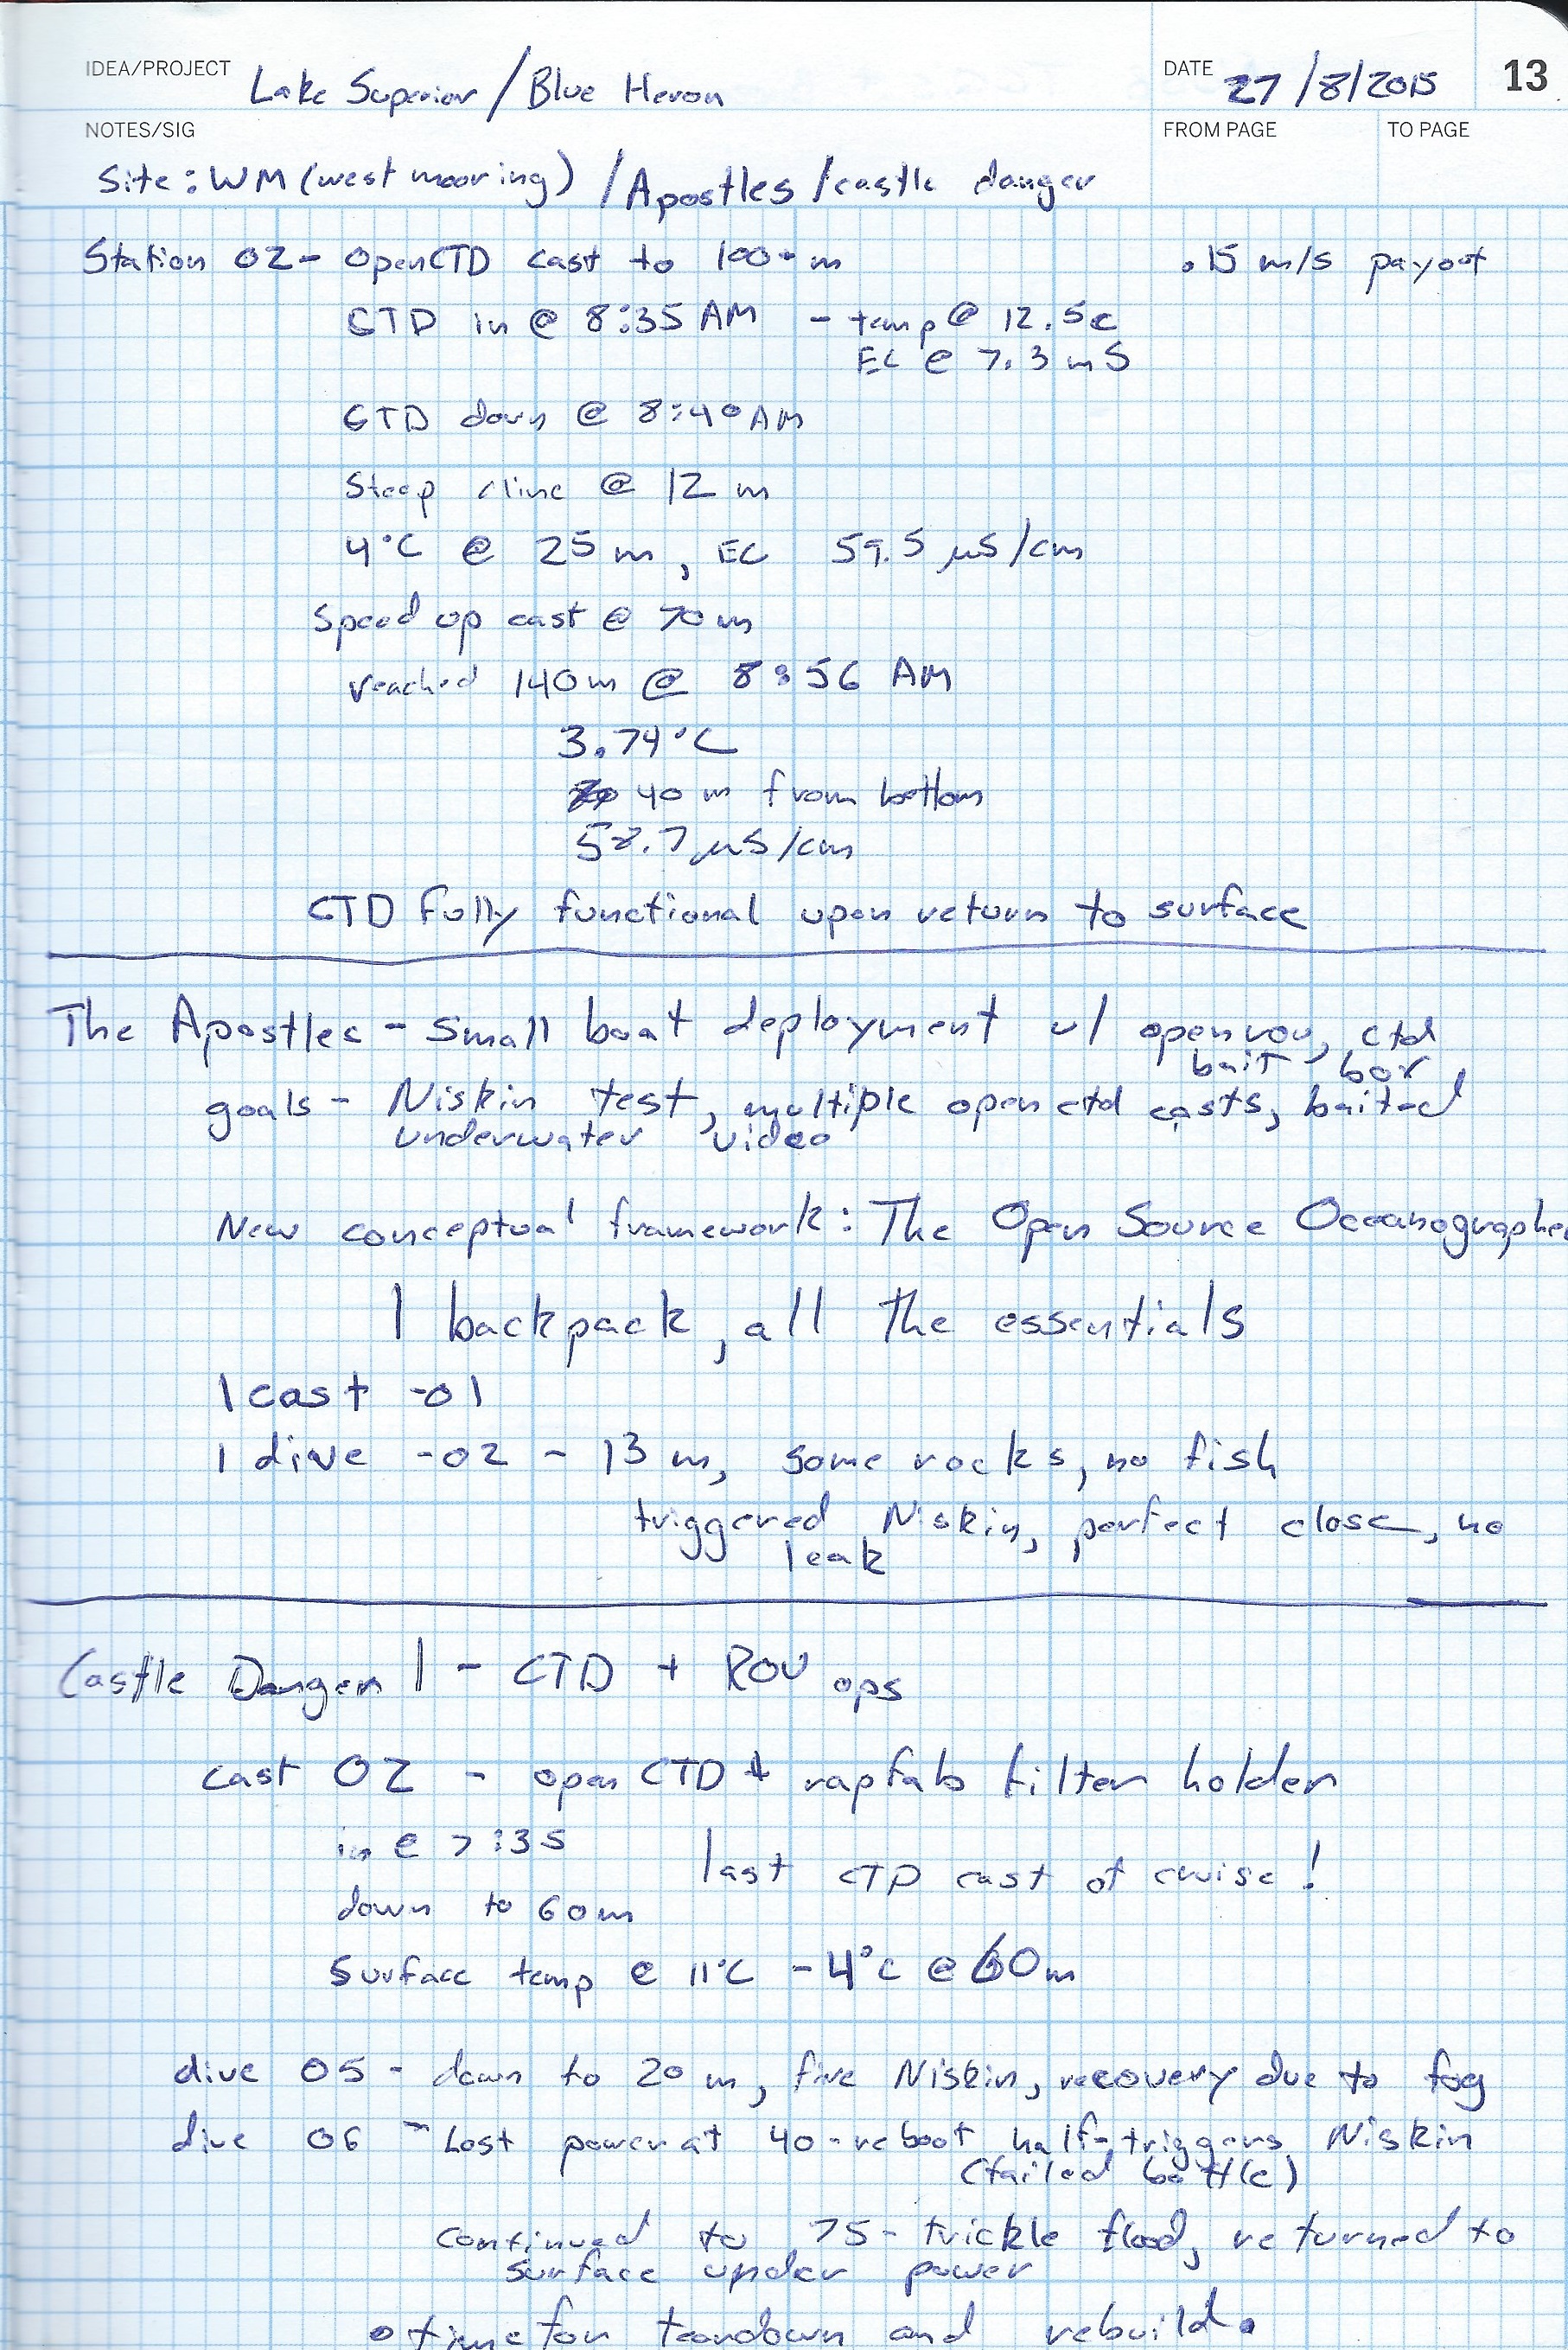 IDEA/PROJECT Lake Superior / Blue Heron
DATE 27/8/2015
13
NOTES/SIG
FROM PAGE
TO PAGE
Site: WM (west mooring) / Apostles / castle danger
Station 02 - OpenCTD cast to 100+ m .15 m/s payout
CTD in @ 8:35 AM - temp @ 12.5c
EC @ 7.3 mS
CTD down @ 8:40 AM
Steep cline @ 12 m
4°C @ 25 m, EC 59.5 µS/cm
Speed up cast @ 70 m
reached 140 m @ 8:56 AM
3.74°C
40 m from bottom
58.7 µS/cm
CTD fully functional upon return to surface
The Apostles - small boat deployment w/ openrov, ctd
bait box
goals - Niskin test, multiple openctd casts, baited
underwater video
New conceptual framework: The Open Source Oceanographer
1 backpack, all the essentials
1 cast -01
1 dive -02 - 13 m, some rocks, no fish
triggered Niskin, perfect close, no
leak
Castle Danger 1 - CTD + ROV ops
cast 02 - open CTD + rapfab filter holder
in @ 7:35
last CTD cast of cruise!
down to 60m
Surface temp @ 11°C - 4°C @ 60m
dive 05 - down to 20 m, fire Niskin, recovery due to fog
dive 06 - Lost power at 40 - reboot half-triggers Niskin
(failed bottle)
continued to 75 - trickle flood, returned to
surface under power
• time for teardown and rebuild.